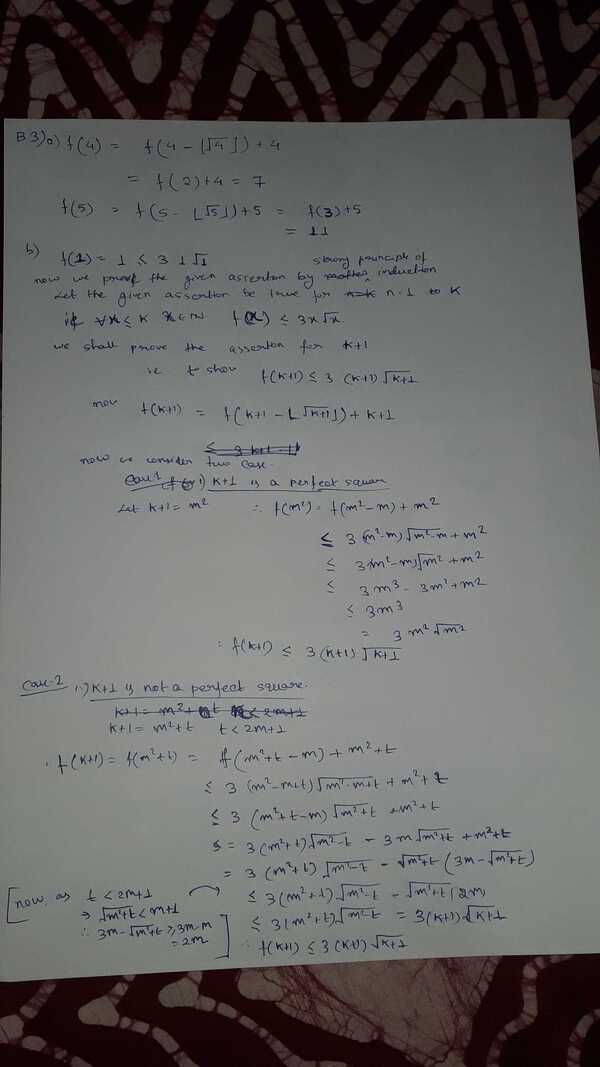 B3) a) f(4) = f(4 - ⌊√4⌋) + 4
= f(2) + 4 = 7
f(5) = f(5 - ⌊√5⌋) + 5 = f(3) + 5
= 11
b) f(1) = 1 ≤ 3 1 √1
strong principle of
now we proof the given assertion by induction
Let the given assertion be true for n=1 to K
ie ∀ x ≤ K x ∈ N f(x) ≤ 3x√x.
we shall prove the assertion for K+1
ie t show f(K+1) ≤ 3 (K+1) √K+1
now f(K+1) = f(K+1 - ⌊√K+1⌋) + K+1
≤ 3 K+1 -
now we consider two case.
Case 1 i) K+1 is a perfect square
Let K+1 = m² ∴ f(m²) = f(m² - m) + m²
≤ 3 (m² - m) √m² - m + m²
≤ 3(m² - m) √m² + m²
≤ 3m³ - 3m² + m²
≤ 3m³
= 3 m² √m²
∴ f(K+1) ≤ 3 (K+1) √K+1
Case-2 ii) K+1 is not a perfect square.
K+1 = m² + t < 2m+1
K+1 = m² + t t < 2m+1
∴ f(K+1) = f(m² + t) = f(m² + t - m) + m² + t
≤ 3 (m² - m + t) √m² - m + t + m² + t
≤ 3 (m² + t - m) √m² + t + m² + t
= 3(m² + t) √m² - t - 3m √m² + t + m² + t
= 3 (m² + t) √m² - t - √m² + t (3m - √m² + t)
[now, as t < 2m+1 ≤ 3(m² + t) √m² - t - √m² + t (2m)
⇒ √m² + t < m+1 ≤ 3(m² + t) √m² - t = 3(K+1) √K+1
∴ 3m - √m² + t ≥ 3m - m
= 2m ] ∴ f(K+1) ≤ 3 (K+1) √K+1